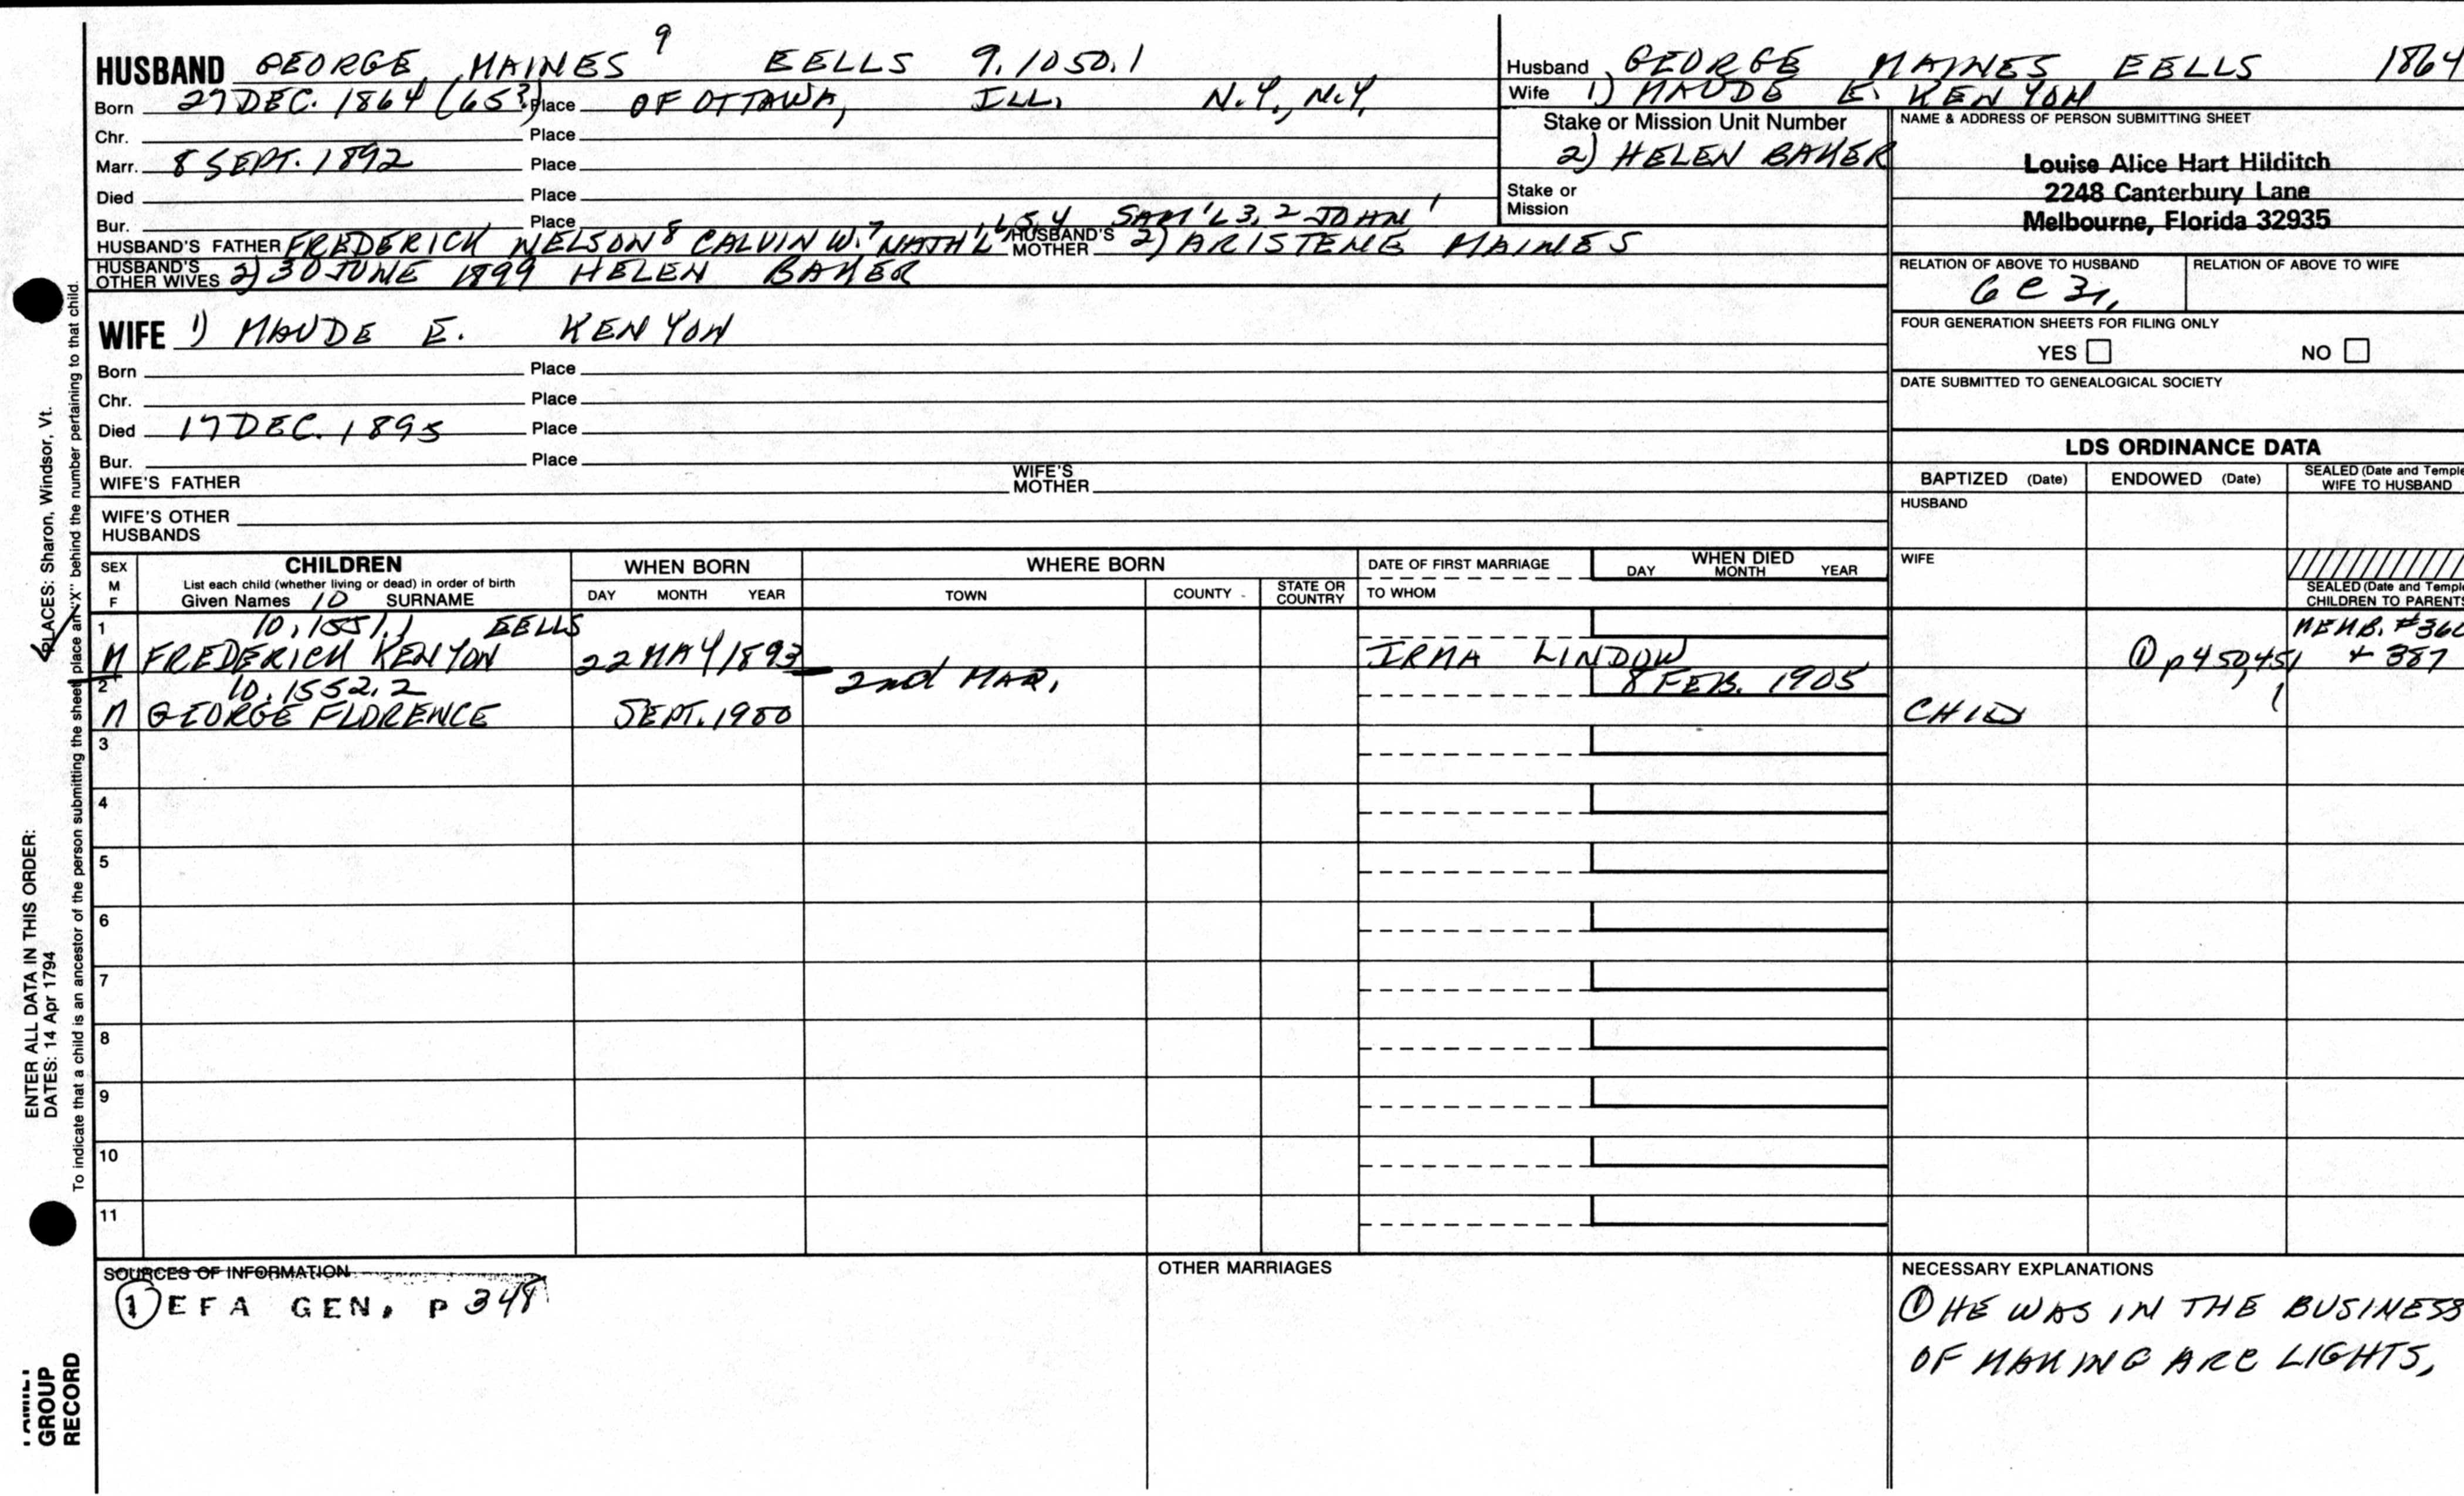 HUSBAND GEORGE MAINES 9 EELLS 9.1050.1
Born 27 DEC. 1864 (65?) Place OF OTTAWA, ILL. N.Y., N.Y.
Chr. Place
Marr. 8 SEPT. 1892 Place
Died Place
Bur. Place
HUSBAND'S FATHER FREDERICK NELSON 8 CALVIN W. 7 NATH'L 6, 5, 4 SAM'L 3, 2 JOHN 1 HUSBAND'S MOTHER 2) ARISTENE MAINES
HUSBAND'S OTHER WIVES 2) 30 JUNE 1899 HELEN BAKER
WIFE 1) MAUDE E. KENYON
Born Place
Chr. Place
Died 17 DEC. 1895 Place
Bur. Place
WIFE'S FATHER WIFE'S MOTHER
WIFE'S OTHER HUSBANDS
Husband GEORGE MAINES EELLS 1864
Wife 1) MAUDE E. KENYON
Stake or Mission Unit Number
2) HELEN BAKER
Stake or Mission
NAME & ADDRESS OF PERSON SUBMITTING SHEET
Louise Alice Hart Hilditch
2248 Canterbury Lane
Melbourne, Florida 32935
RELATION OF ABOVE TO HUSBAND RELATION OF ABOVE TO WIFE
6 C 3r,
FOUR GENERATION SHEETS FOR FILING ONLY
YES NO
DATE SUBMITTED TO GENEALOGICAL SOCIETY
LDS ORDINANCE DATA
BAPTIZED (Date) ENDOWED (Date) SEALED (Date and Temple
WIFE TO HUSBAND
HUSBAND
WIFE
SEALED (Date and Temple
CHILDREN TO PARENTS
SEX M F CHILDREN WHEN BORN WHERE BORN DATE OF FIRST MARRIAGE WHEN DIED
List each child (whether living or dead) in order of birth
Given Names 10 SURNAME DAY MONTH YEAR TOWN COUNTY STATE OR COUNTRY TO WHOM DAY MONTH YEAR
1 10.1551.1 EELLS MEMB. #360
M FREDERICK KENYON 22 MAY 1893 IRMA LINDOW ① p 450, 451 + 387
2 10.1552.2 2nd MAR. 8 FEB. 1905
M GEORGE FLORENCE SEPT. 1900 CHILD
3
4
5
6
7
8
9
10
11
SOURCES OF INFORMATION
① EFA GEN. P 348
OTHER MARRIAGES
NECESSARY EXPLANATIONS
① HE WAS IN THE BUSINESS
OF MAKING ARC LIGHTS,
PLACES: Sharon, Windsor, Vt.
ENTER ALL DATA IN THIS ORDER:
DATES: 14 Apr 1794
To indicate that a child is an ancestor of the person submitting the sheet, place an "X" behind the number pertaining to that child.
FAMILY
GROUP
RECORD